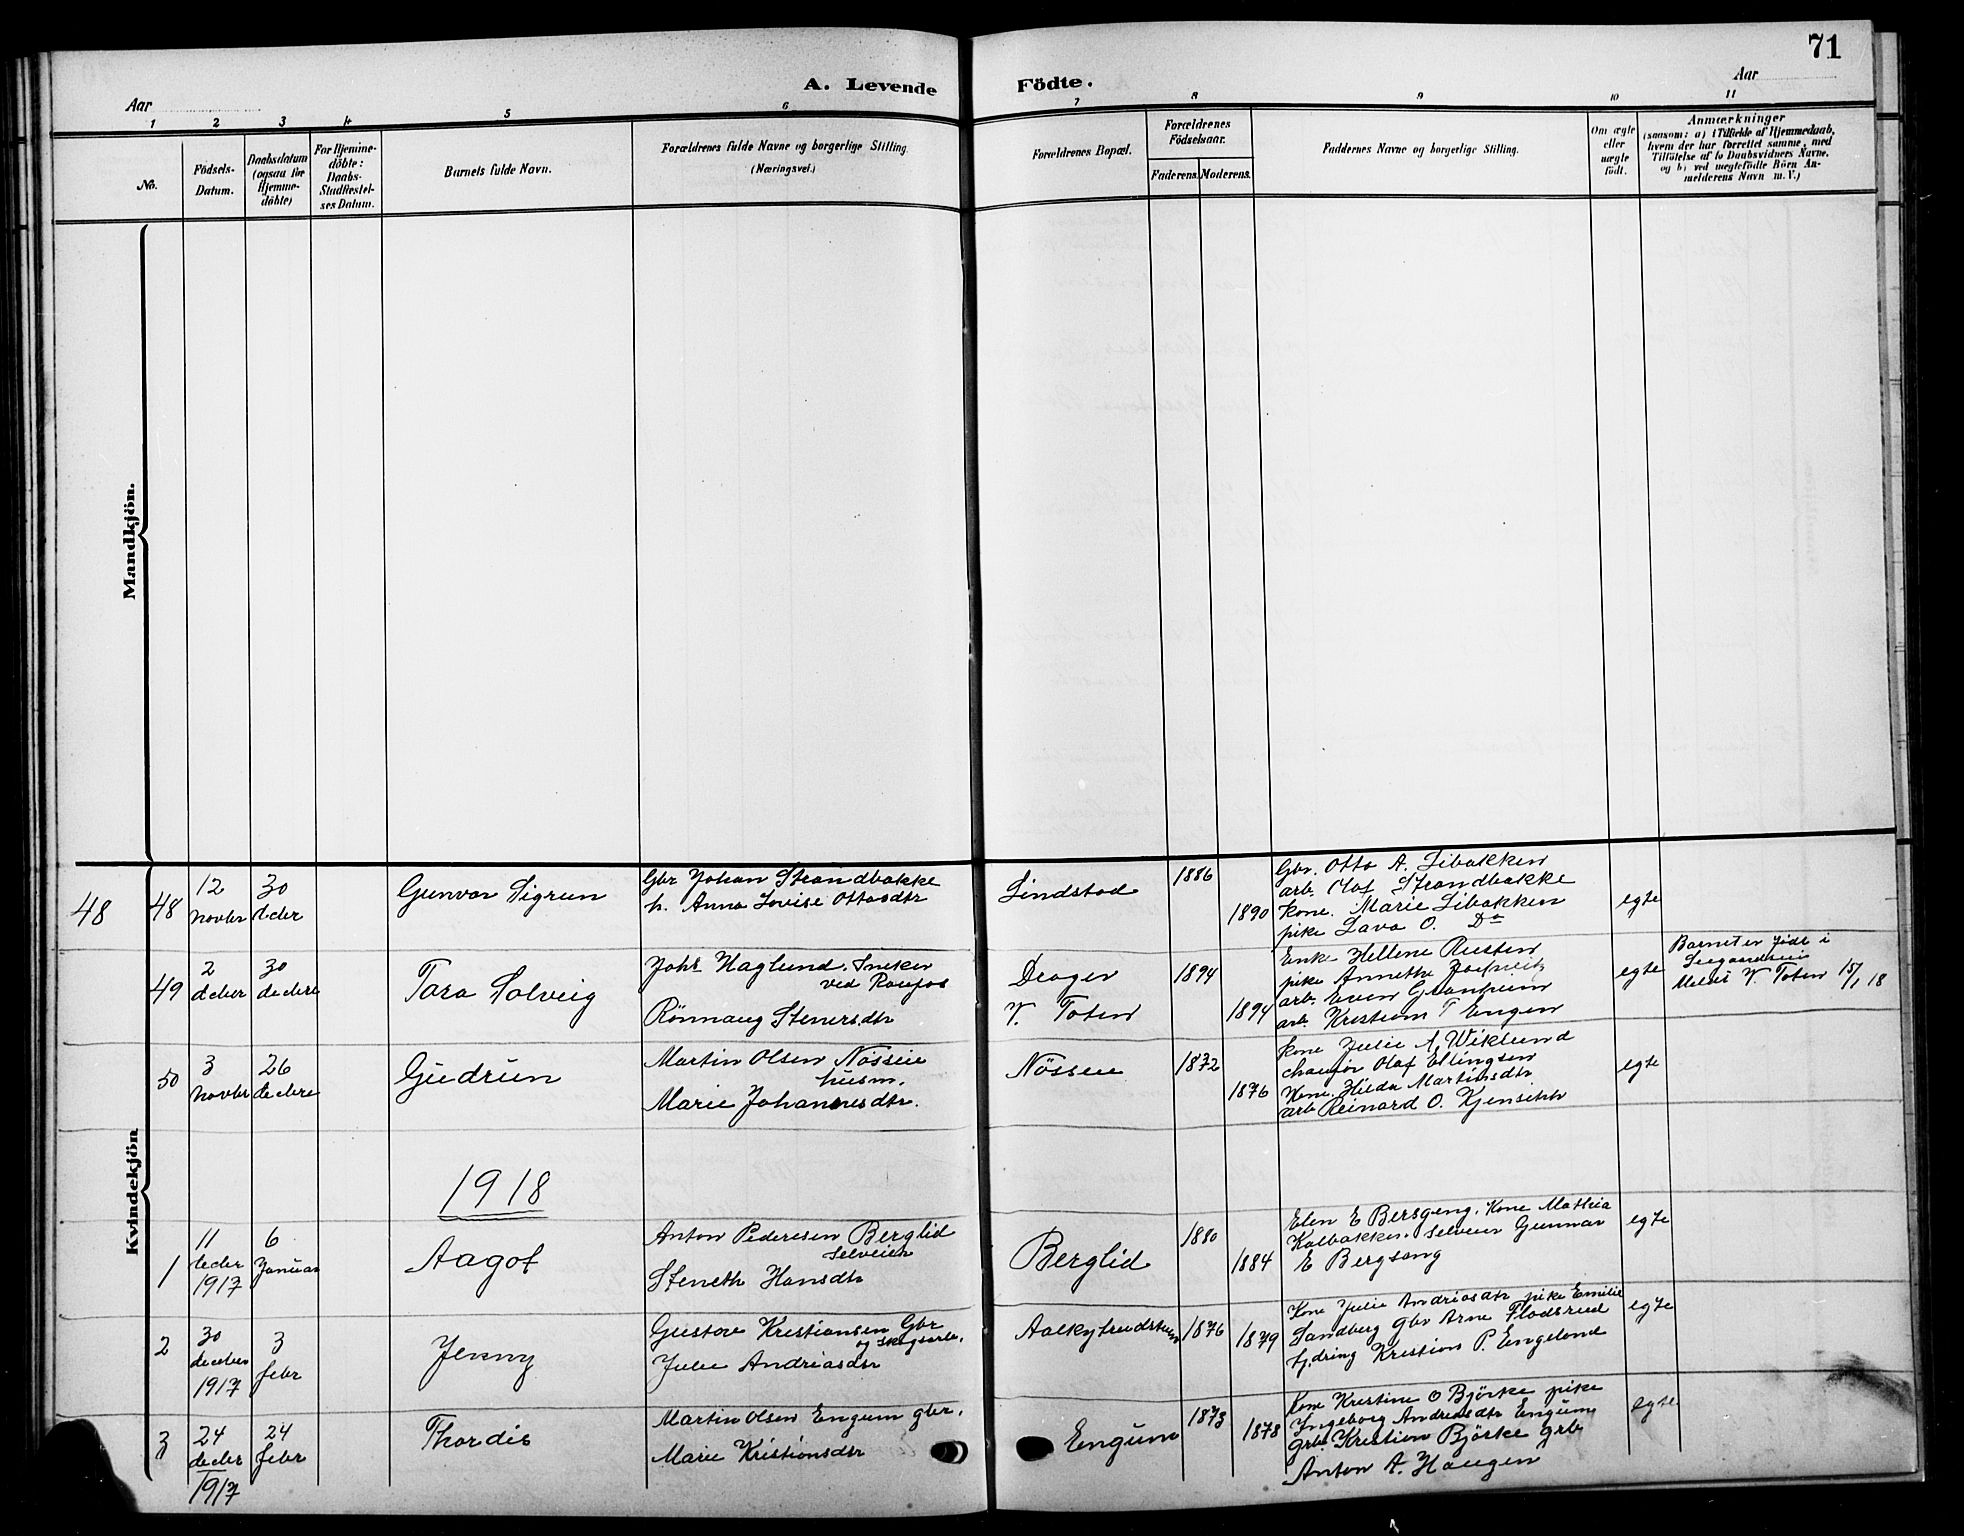 71
A. Levende Födte.
Aar
Aar
1 2 3 4 5 6 7 8 9 10 11
No.
Födsels-Datum.
Daabsdatum (ogsaa for Hjemme-döbte)
For Hjemme-döbte: Daabs-Stadfæstel-ses Datum.
Barnets fulde Navn.
Forældrenes fulde Navne og borgerlige Stilling. (Næringsvei.)
Forældrenes Bopæl.
Forældrenes Födselsaar.
Faderens. Moderens.
Faddernes Navne og borgerlige Stilling.
Om ægte eller uægte födt.
Anmærkninger
(saasom: a) i Tilfælde af Hjemmedaab,
hvem der har forrettet samme, med
Tilföielse af to Daabsvidners Navne.
og b) ved uægtefödte Börn An-
melderens Navn m. V.)
Mandkjön.
Kvindekjön
48 48 12 novbr 30 decbr Gunvor Sigrun
Gbr Johan Strandbakke
h. Anna Lovise Ottosdtr
Lindstad 1886 1890
Gbr. Otto A. Libakken
arb. Olaf Strandbakke
Kone. Marie Libakken
pike Lava O. Do
egte
49 2 decbr 30 decbre Tora Solveig
Johs Haglund. Sneker
ved Raufos
Rönnaug Stenersdtr
V. Toten 1894 1894
Enk. Hellene Rusten
pike Annethe
arb. Even Granheim
arb. Kristian T Engen
egte
Barnet er födt i
V. Toten 15/1 18
50 3 novbr 26 decbre Gudrun
Martin Olsen Nösseie
husm.
Marie Johannesdtr.
Nösseie 1872 1876
Kone Julie A. Wiklund
chauför Olaf Ellingsen
Kone. Hilda Martinsdtr
arb Reinard O. Kjenseth
egte
1918
1 11 decbr 1917 6 Januar Aagot
Anton Pedersen Berglid
Selveier
Steneth Hansdtr
Berglid 1880 1884
Elen E Bersgeng. Kone Mathea
Kalbakken. Selveier Gunnar
E Bergsang
egte
2 30 decbr 1917 3 febr Jenny
Gustav Kristiansen Gbr
og skogsarb.
Julie Andriasdtr
1876 1879
Kone Julie Andriasdtr pike Emilie
Sandberg gbr Arne Flodsrud
Kristian P. Engeland
egte
3 24 decbr 1917 24 febr Thordis
Martin Olsen Engum gbr.
Marie Kristiansdtr
Engum 1873 1878
Kone Kristine O Björke pike
Ingeborg Andreasdtr Engum
Grb. Kristian Björke grb
Anton A. Haugen
egte